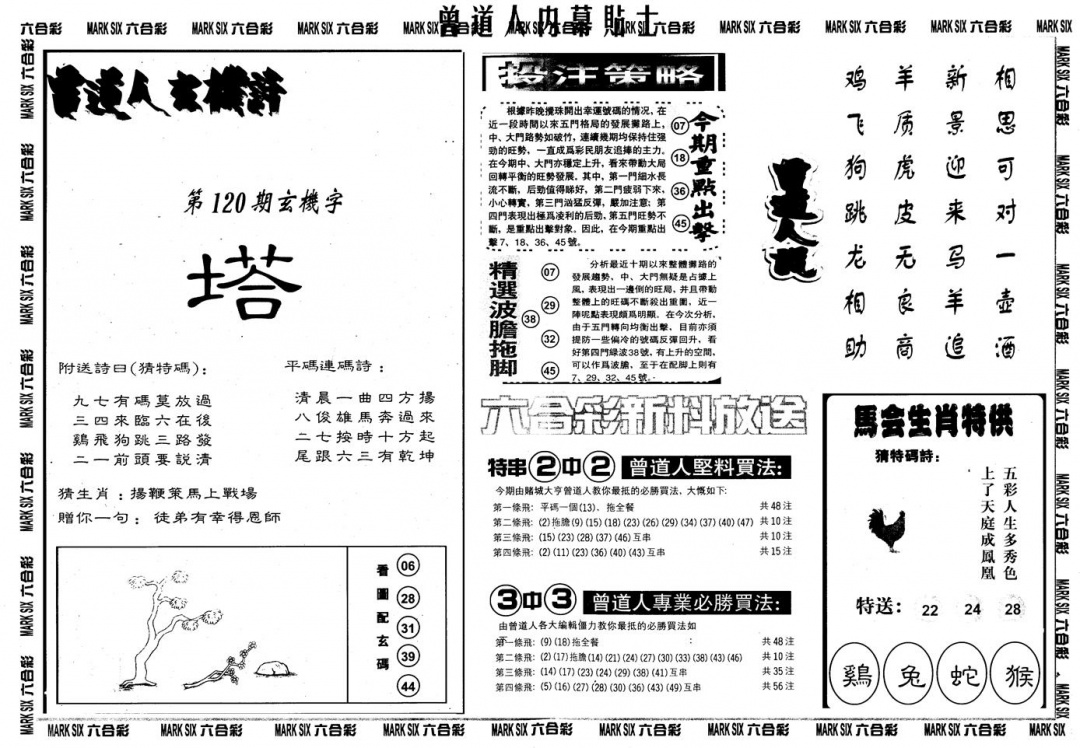 曾道人内幕貼士
六合彩 MARK SIX 六合彩 MARK SIX 六合彩 MARK SIX 六合彩 MARK SIX 六合彩 MARK SIX 六合彩 MARK SIX 六合彩 MARK SIX 六合彩 MARK SIX 六合彩 MARK SIX 六合彩 MARK SIX
曾道人玄機詩
第120期玄機字
塔
附送詩曰(猜特碼):
九七有碼莫放過
三四來臨六在後
鷄飛狗跳三路發
二一前頭要説清
平碼連碼詩:
清晨一曲四方揚
八俊雄馬奔過來
二七按時十方起
尾跟六三有乾坤
猜生肖:揚鞭策馬上戰場
贈你一句:徒弟有幸得恩師
看圖配玄碼
06
28
31
39
44
投注策略
根據昨晚攪珠開出幸運號碼的情况,在
近一段時間以來五門格局的發展攤路上,
中、大門路勢如破竹,連續幾期均保持住强
勁的旺勢,一直成爲彩民朋友追捧的主力。
在今期中、大門亦穩定上升,看來帶動大局
回轉平衡的旺勢發展。其中,第一門細水長
流不斷,后勁值得睇好,第二門疲弱下來,
小心轉實,第三門汹猛反彈,嚴加注意;第
四門表現出極爲凌利的后勁,第五門旺勢不
斷,是重點出擊對象。因此,在今期重點出
擊7、18、36、45號。
07
18
36
45
今期重點出擊
精選波膽拖脚
07
29
38
32
45
分析最近十期以來整體攤路的
發展趨勢,中、大門無疑是占據上
風,表現出一邊倒的旺局,并且帶動
整體上的旺碼不斷殺出重圍,近一
陣呢點表現頗爲明顯。在今次分析,
由于五門轉向均衡出擊,目前亦須
提防一些偏冷的號碼反彈回升,看
好第四門緑波38號,有上升的空間,
可以作爲波膽,至于在配脚上則有
7、29、32、45號。
六合彩新料放送
特串②中② 曾道人堅料買法:
今期由賭城大亨曾道人教你最抵的必勝買法,大慨如下:
第一條飛: 平碼一個(13),拖全餐 共48注
第二條飛: (2)拖膽(9)(15)(18)(23)(26)(29)(34)(37)(40)(47) 共10注
第三條飛: (15)(23)(28)(37)(46)互串 共10注
第四條飛: (2)(11)(23)(36)(40)(43)互串 共15注
③中③ 曾道人專業必勝買法:
由曾道人各大编輯僵力教你最抵的必勝買法如
:
第一條飛: (9)(18)拖全餐 共48注
第二條飛: (2)(17)拖膽(14)(21)(24)(27)(30)(33)(38)(43)(46) 共10注
第三條飛: (14)(17)(23)(24)(29)(38)(41)互串 共35注
第四條飛: (5)(16)(27)(28)(30)(36)(43)(49)互串 共56注
曾道人説
相思可对一壶酒
新景迎来马羊追
羊质虎皮无良商
鸡飞狗跳龙相助
馬会生肖特供
猜特碼詩:
五彩人生多秀色
上了天庭成鳳凰
特送: 22 24 28
鷄 兔 蛇 猴
MARK SIX 六合彩 MARK SIX 六合彩 MARK SIX 六合彩 MARK SIX 六合彩 MARK SIX 六合彩 MARK SIX 六合彩 MARK SIX 六合彩
MARK SIX 六合彩 MARK SIX 六合彩 MARK SIX 六合彩 MARK SIX 六合彩 MARK SIX 六合彩 MARK SIX 六合彩 MARK SIX
MARK SIX 六合彩 MARK SIX 六合彩 MARK SIX 六合彩 MARK SIX 六合彩 MARK SIX 六合彩 MARK SIX 六合彩 MARK SIX 六合彩 MARK SIX 六合彩 MARK SIX 六合彩 MARK SIX